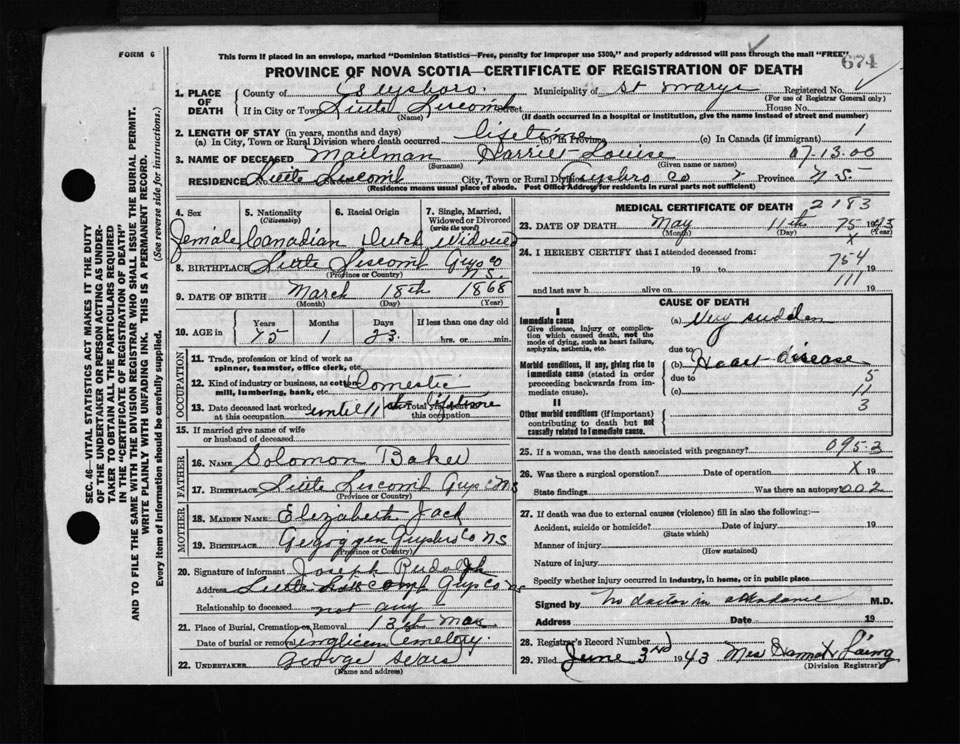 FORM 6
This form if placed in an envelope, marked "Dominion Statistics—Free, penalty for improper use $300," and properly addressed will pass through the mail "FREE"
674
PROVINCE OF NOVA SCOTIA—CERTIFICATE OF REGISTRATION OF DEATH
1. PLACE OF DEATH
County of Guysboro. Municipality of St Marys Registered No.
(For use of Registrar General only)
If in City or Town Little Liscomb Street House No.
(Name) (If death occurred in a hospital or institution, give the name instead of street and number)
2. LENGTH OF STAY (in years, months and days)
(a) In City, Town or Rural Division where death occurred lifetime (b) In Province (c) In Canada (if immigrant) 1
3. NAME OF DECEASED Mailman Harriet Louise 07.13.00
(Surname) (Given name or names)
RESIDENCE Little Liscomb City, Town or Rural Division Guysbro Co Province N S.
(Residence means usual place of abode. Post Office Address for residents in rural parts not sufficient)
4. Sex
female
5. Nationality (Citizenship)
Canadian
6. Racial Origin
Dutch
7. Single, Married, Widowed or Divorced (write the word)
Widowed
8. BIRTHPLACE Little Liscomb Guys Co N.S.
(Province or Country)
9. DATE OF BIRTH March 18th 1868
(Month) (Day) (Year)
10. AGE in Years Months Days If less than one day old
75 1 23 hrs. or min.
OCCUPATION
11. Trade, profession or kind of work as spinner, teamster, office clerk, etc.
12. Kind of industry or business, as cotton mill, lumbering, bank, etc. Domestic
13. Date deceased last worked at this occupation until 11 14. Total years spent in this occupation lifetime
15. If married give name of wife or husband of deceased
FATHER
16. NAME Solomon Baker
17. BIRTHPLACE Little Liscomb Guys C NS
(Province or Country)
MOTHER
18. MAIDEN NAME Elizabeth Jack
19. BIRTHPLACE Guysbro Co NS
(Province or Country)
20. Signature of informant Joseph Rudolph
Address Little Liscomb Guys Co NS
Relationship to deceased not any
21. Place of Burial, Cremation or Removal 13th May
Date of burial or removal Anglican Cemetery.
22. UNDERTAKER George Sears
(Name and address)
MEDICAL CERTIFICATE OF DEATH 2183
23. DATE OF DEATH May 11th 75 1943
(Month) (Day) (Year)
X
24. I HEREBY CERTIFY that I attended deceased from: 754
19 to 19
111
and last saw h alive on 19
CAUSE OF DEATH
I
Immediate cause
Give disease, injury or complication which caused death, not the mode of dying, such as heart failure, asphyxia, asthenia, etc.
(a) Very sudden
due to
Morbid conditions, if any, giving rise to immediate cause (stated in order proceeding backwards from immediate cause).
(b) Heart disease
due to 5
(c) 11
3
II
Other morbid conditions (if important) contributing to death but not causally related to immediate cause.
25. If a woman, was the death associated with pregnancy? 0953
26. Was there a surgical operation? Date of operation X 19
State findings Was there an autopsy? 002
27. If death was due to external causes (violence) fill in also the following:—
Accident, suicide or homicide? Date of injury 19
(State which)
Manner of injury
(How sustained)
Nature of injury
Specify whether injury occurred in industry, in home, or in public place
Signed by no doctor in attendance M.D.
Address Date 19
28. Registrar's Record Number
29. Filed June 3rd 1943 Mrs Laing
(Division Registrar)
SEC. 46—VITAL STATISTICS ACT MAKES IT THE DUTY
OF THE UNDERTAKER OR PERSON ACTING AS UNDER-
TAKER TO OBTAIN ALL THE PARTICULARS REQUIRED
IN THE "CERTIFICATE OF REGISTRATION OF DEATH"
AND TO FILE THE SAME WITH THE DIVISION REGISTRAR WHO SHALL ISSUE THE BURIAL PERMIT.
WRITE PLAINLY WITH UNFADING INK. THIS IS A PERMANENT RECORD.
Every item of information should be carefully supplied. (See reverse side for instructions.)